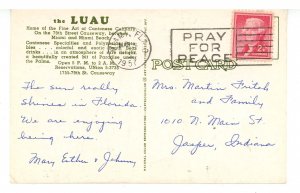 the LUAU
Home of the Fine Art of Cantonese Cookery
On the 79th Street Causeway, between
Miami and Miami Beach
Cantonese Specialties and Polynesian
colorful and exotic
in an atmosphere of
a beautifully created bit of Paradise under
the Palms.
Open 5 P.M. to 2 A.M.
Reservations,
1755-79th St. Causeway
PRAY
FOR
PEACE
POST CARD
The sun really
shines in Florida.
We are enjoying
being here.
Mary Esther & Johnny
Mrs. Martin Fritch
and Family
1010 N. Main St
Jasper, Indiana